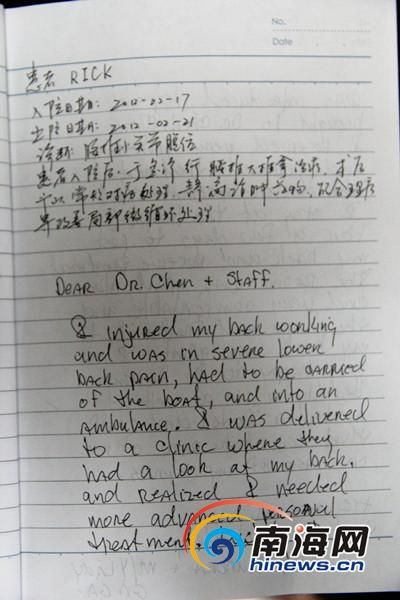 No.
Date
患者 RICK
入院日期: 2012-02-17
出院日期: 2012-02-21
诊断: 腰椎小关节错位
患者入院后,于急诊行腰椎大推拿治疗,术后
予以常规对症处理,
局部微循环处理
DEAR DR. Chen + STAFF.
I injured my back working
and was in severe lower
back pain, had to be carried
of the boat, and into an
ambulance. I was delivered
to a clinic where they
had a look at my back,
and realized I needed
more advanced personal
treatment.
南海网
hinews.cn